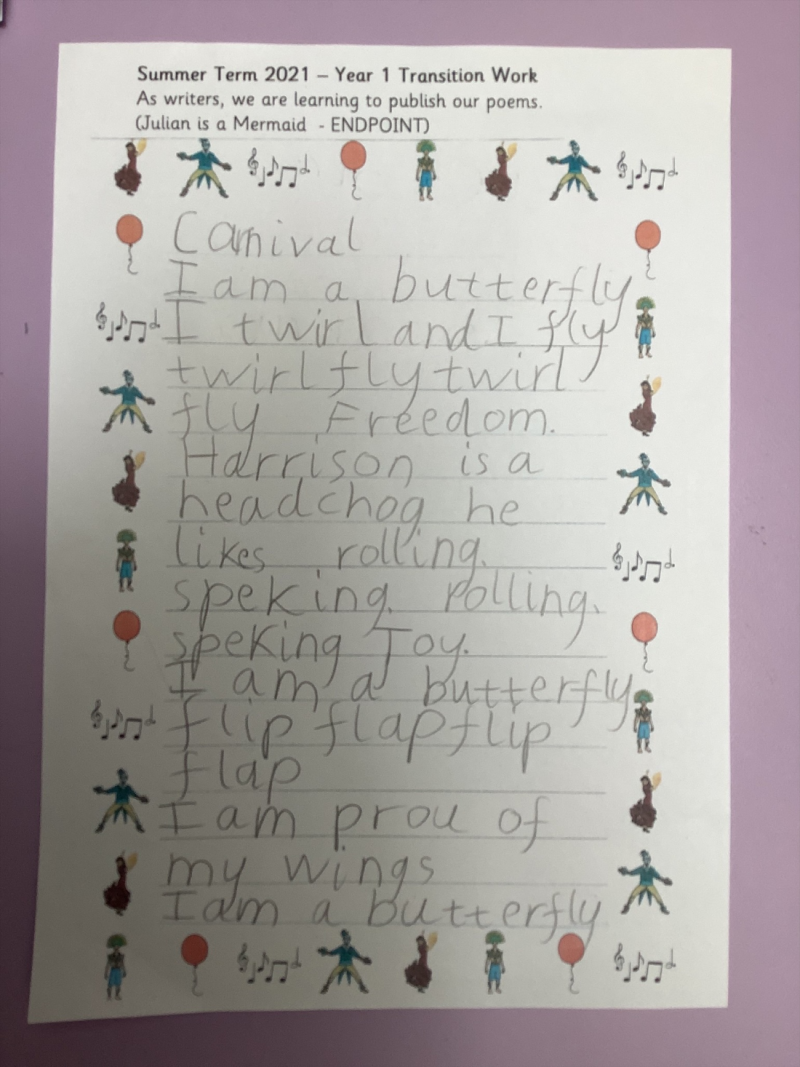 Summer Term 2021 – Year 1 Transition Work
As writers, we are learning to publish our poems.
(Julian is a Mermaid - ENDPOINT)
Carnival
I am a butterfly
I twirl and I fly
twirl fly twirl
fly Freedom.
Harrison is a
headchog he
likes rolling.
speking. rolling.
speking Joy.
I am a butterfly
flip flap flip
flap
I am prou of
my wings
I am a butterfly